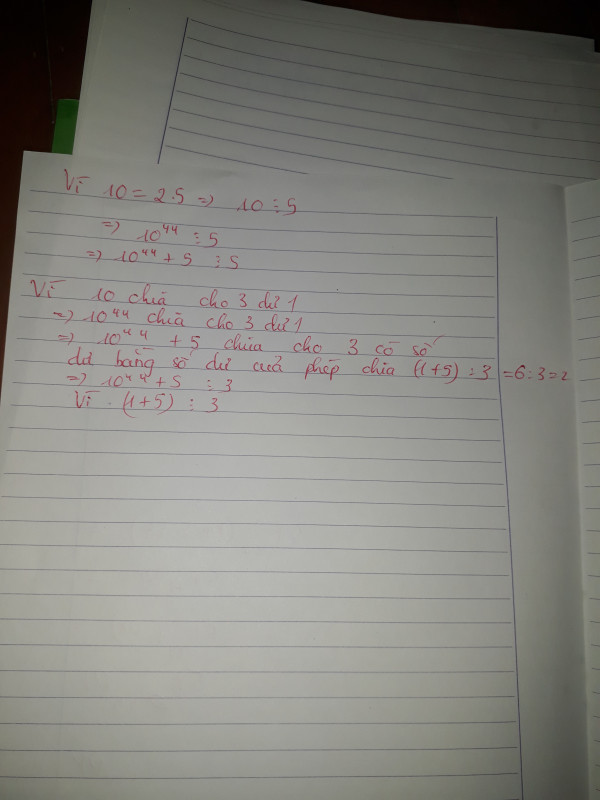 Vì 10 = 2.5 => 10 ⋮ 5
=> 10^44 ⋮ 5
=> 10^44 + 5 ⋮ 5
Vì 10 chia cho 3 dư 1
=> 10^44 chia cho 3 dư 1
=> 10^44 + 5 chia cho 3 có số
dư bằng số dư của phép chia (1+5) : 3 = 6 : 3 = 2
=> 10^44 + 5 ⋮ 3
Vì (1+5) ⋮ 3